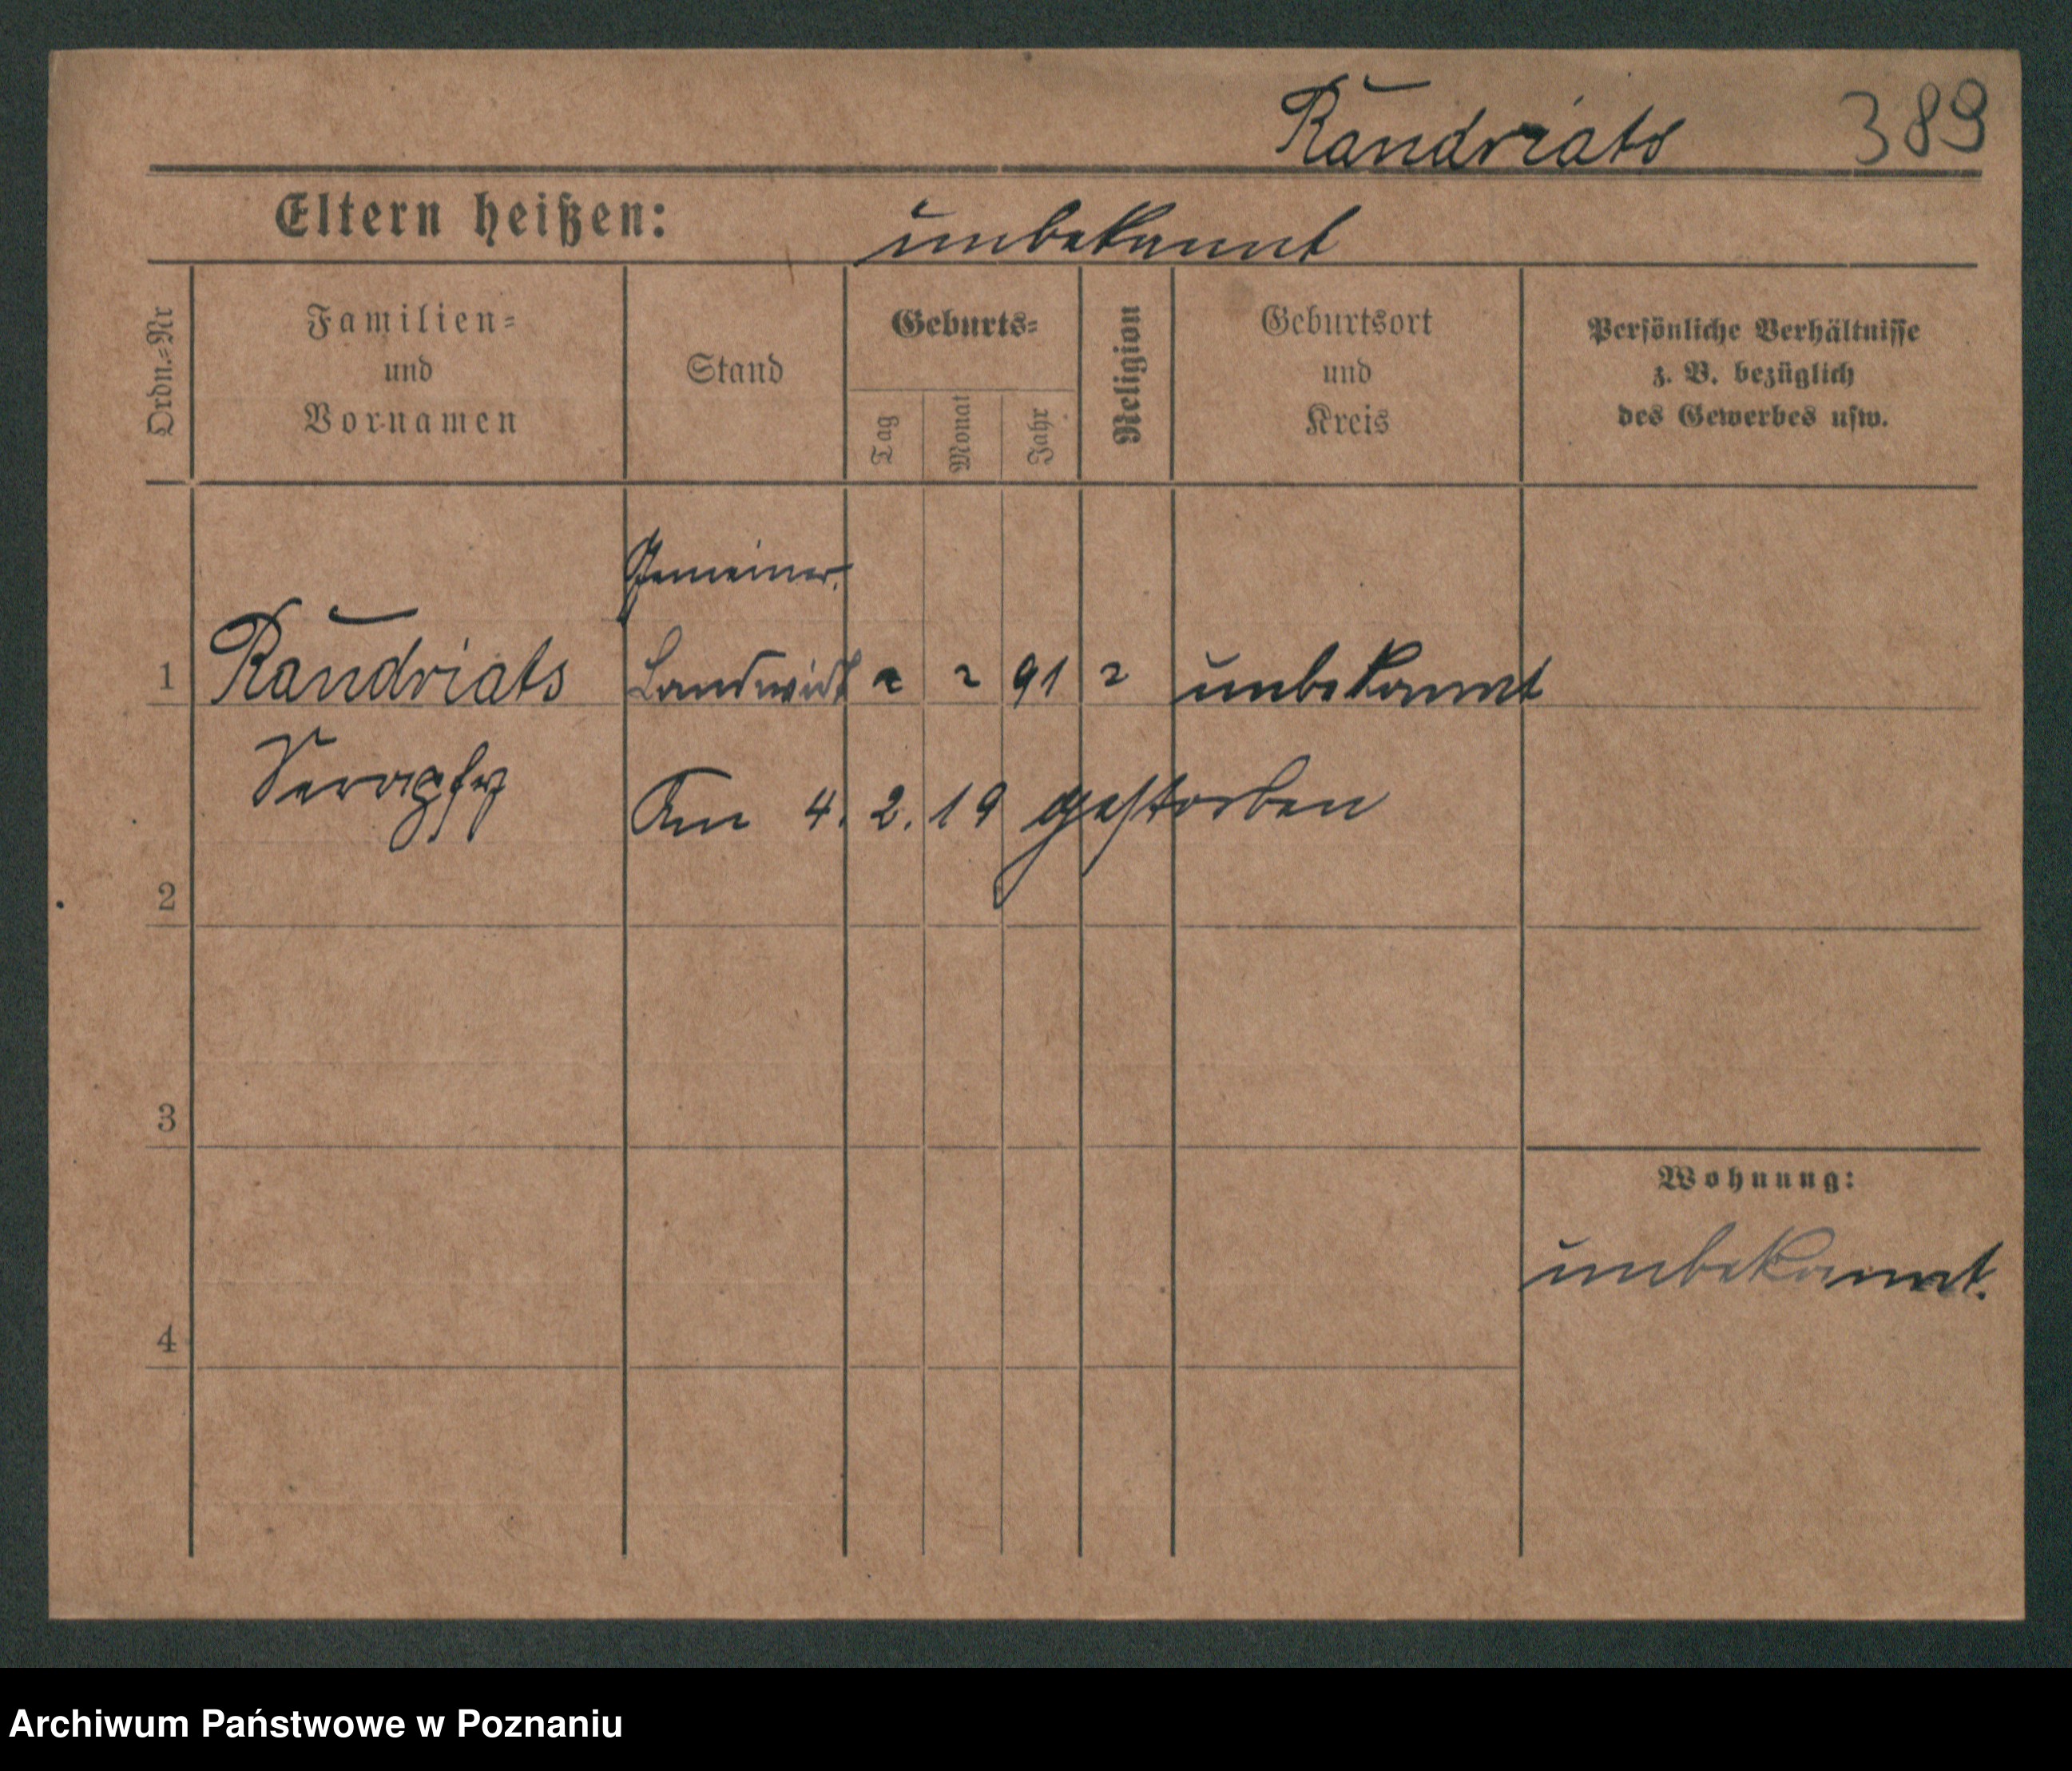 Kaudriats 389
Eltern heißen: unbekannt
Ordn.=Nr
Familien=
und
Vornamen
Stand
Geburts=
Tag
Monat
Jahr
Religion
Geburtsort
und
Kreis
Persönliche Verhältnisse
z. B. bezüglich
des Gewerbes usw.
Gemeiner.
1 Raudriats Landwirt ? ? 91 ? unbekannt
Am 4. 2. 19 gestorben
2
3
Wohnung:
unbekannt.
4
Archiwum Państwowe w Poznaniu